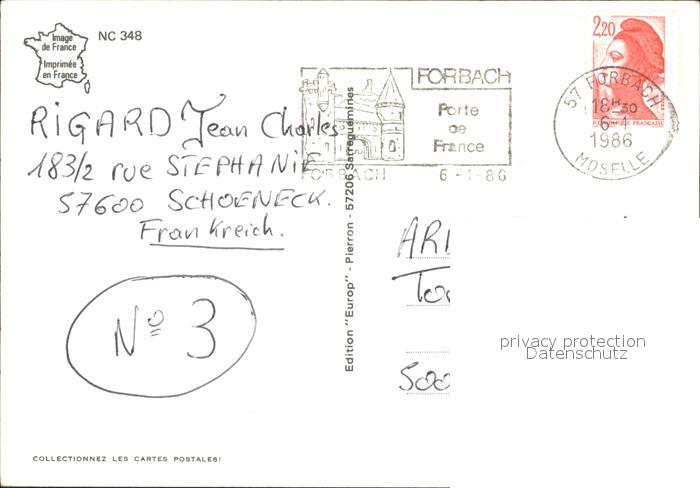 Image
de France
Imprimée
en France
NC 348
RiGARD Jean Charles
183/2 rue STEPHANiE
57600 SCHOENECK.
Frankreich.
Nº 3
COLLECTIONNEZ LES CARTES POSTALES!
Edition "Europ" - Pierron - 57206 Sarreguemines
FORBACH
Porte
de
France
FORBACH 6 -1-86
2,20
57 FORBACH
18H30
6-1
1986
MOSELLE
ARI
To
500
privacy protection
Datenschutz